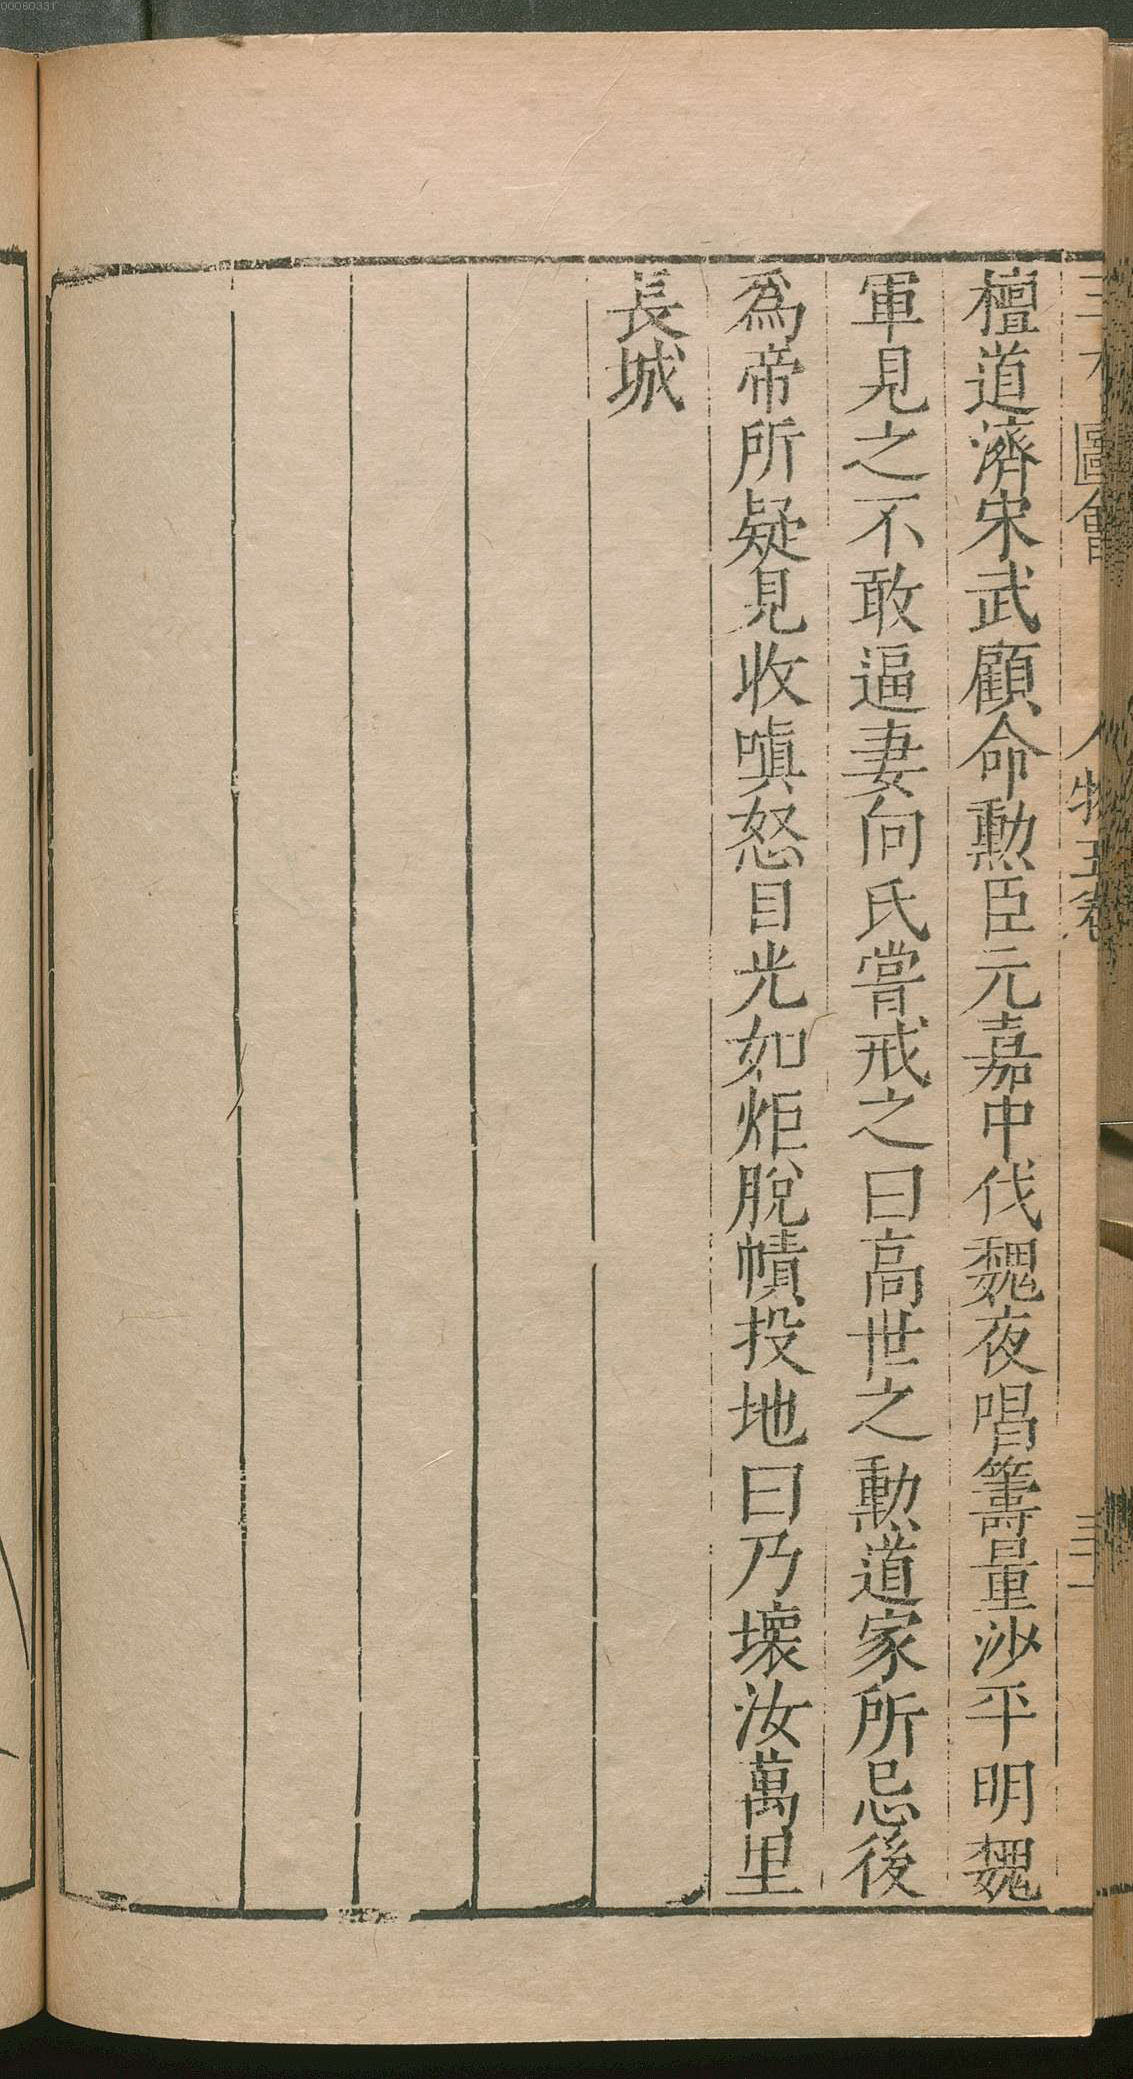 三才圖會 人物五卷 三十一
檀道濟宋武顧命勲臣元嘉中伐魏夜唱籌量沙平明魏
軍見之不敢逼妻向氏嘗戒之曰高世之勲道家所忌後
為帝所疑見收嗔怒目光如炬脫幘投地曰乃壞汝萬里
長城
00060331